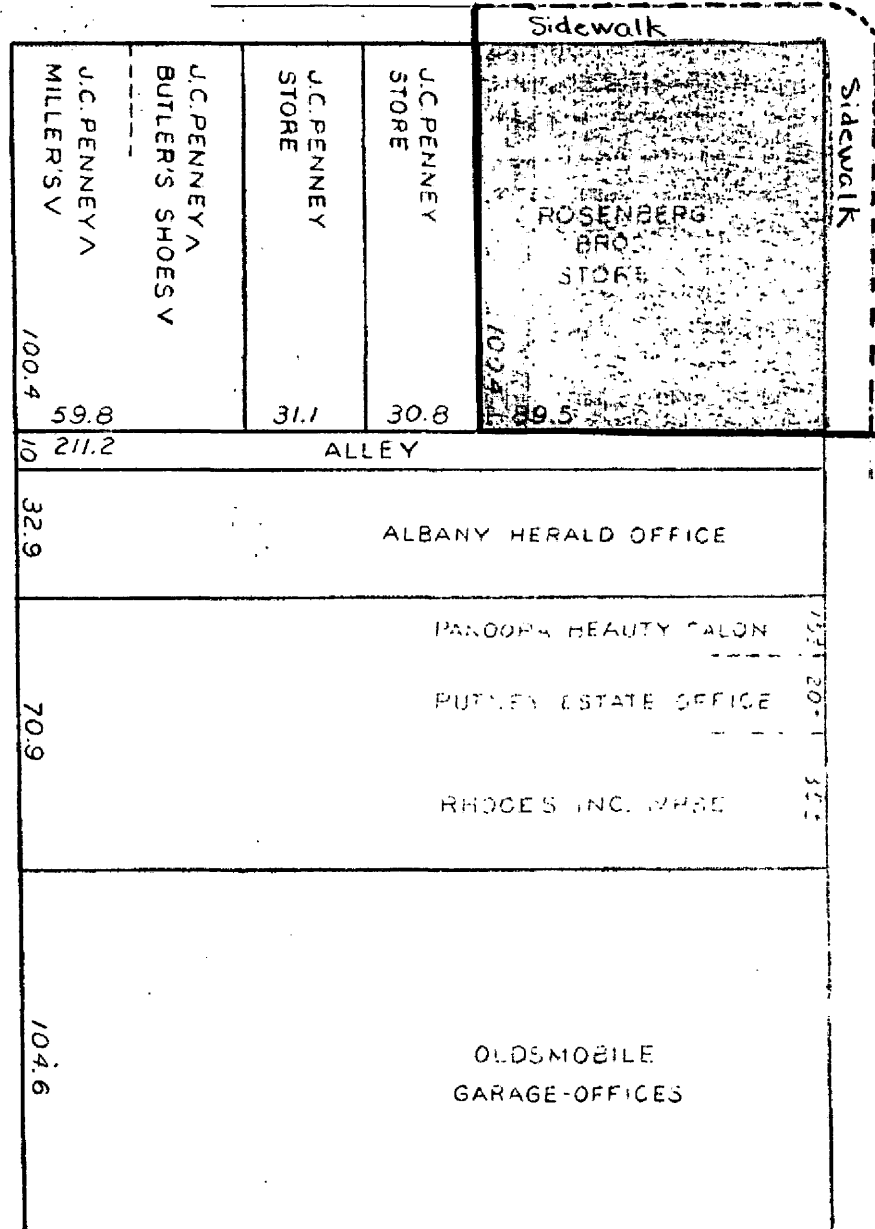 Sidewalk
Sidewalk
J.C. PENNEY Λ
MILLER'S V
J.C. PENNEY Λ
BUTLER'S SHOES V
J.C. PENNEY
STORE
J.C. PENNEY
STORE
ROSENBERG
BROS.
STORE
100.4
59.8
31.1
30.8
100.4
89.5
10
211.2
ALLEY
32.9
ALBANY HERALD OFFICE
70.9
PANDORA BEAUTY SALON
PUTNEY ESTATE OFFICE
20
RHODES INC. WHSE
104.6
OLDSMOBILE
GARAGE-OFFICES